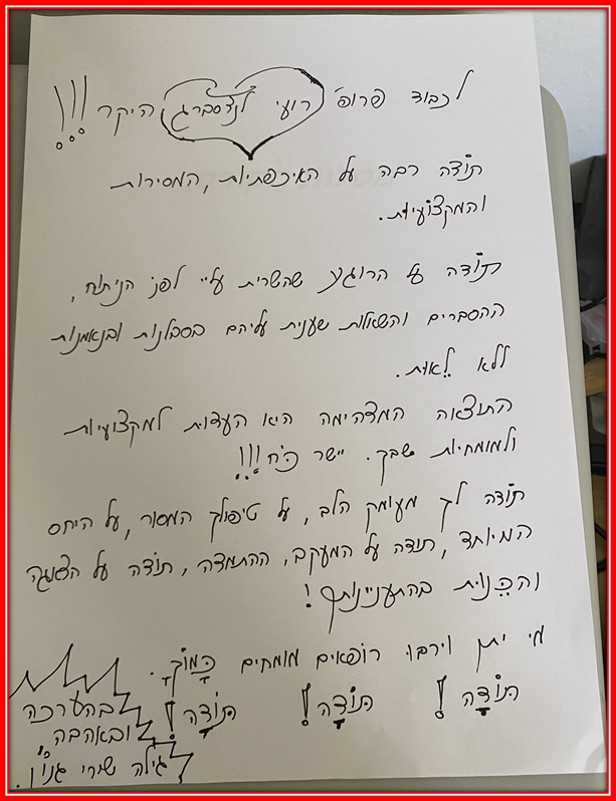 לכבוד פרופ' רועי לנדסברג היקר !!!
תודה רבה על האיכפתיות, המסירות
והמקצועיות.
תודה על הרוגע שהשרית עליי לפני הניתוח,
ההסברים והשאלות שענית עליהם בסבלנות ובנאמנות
ללא לֵאוּת.
התוצאה המדהימה היא העדות למקצועיות
ולמומחיות שבך. יישר כֹּחַ !!!
תודה לך מעומק הלב, על טיפולך המסור, על היחס
המיוחד, תודה על המעקב, ההתמדה, תודה על הדאגה
והכֵּנוּת בהתעניינותך !
מי יתן וירבו רופאים מומחים כָּמוֹךָ.
תּוֹדָה ! תּוֹדָה ! תּוֹדָה !
בהערכה
ובאהבה
גילה שירי